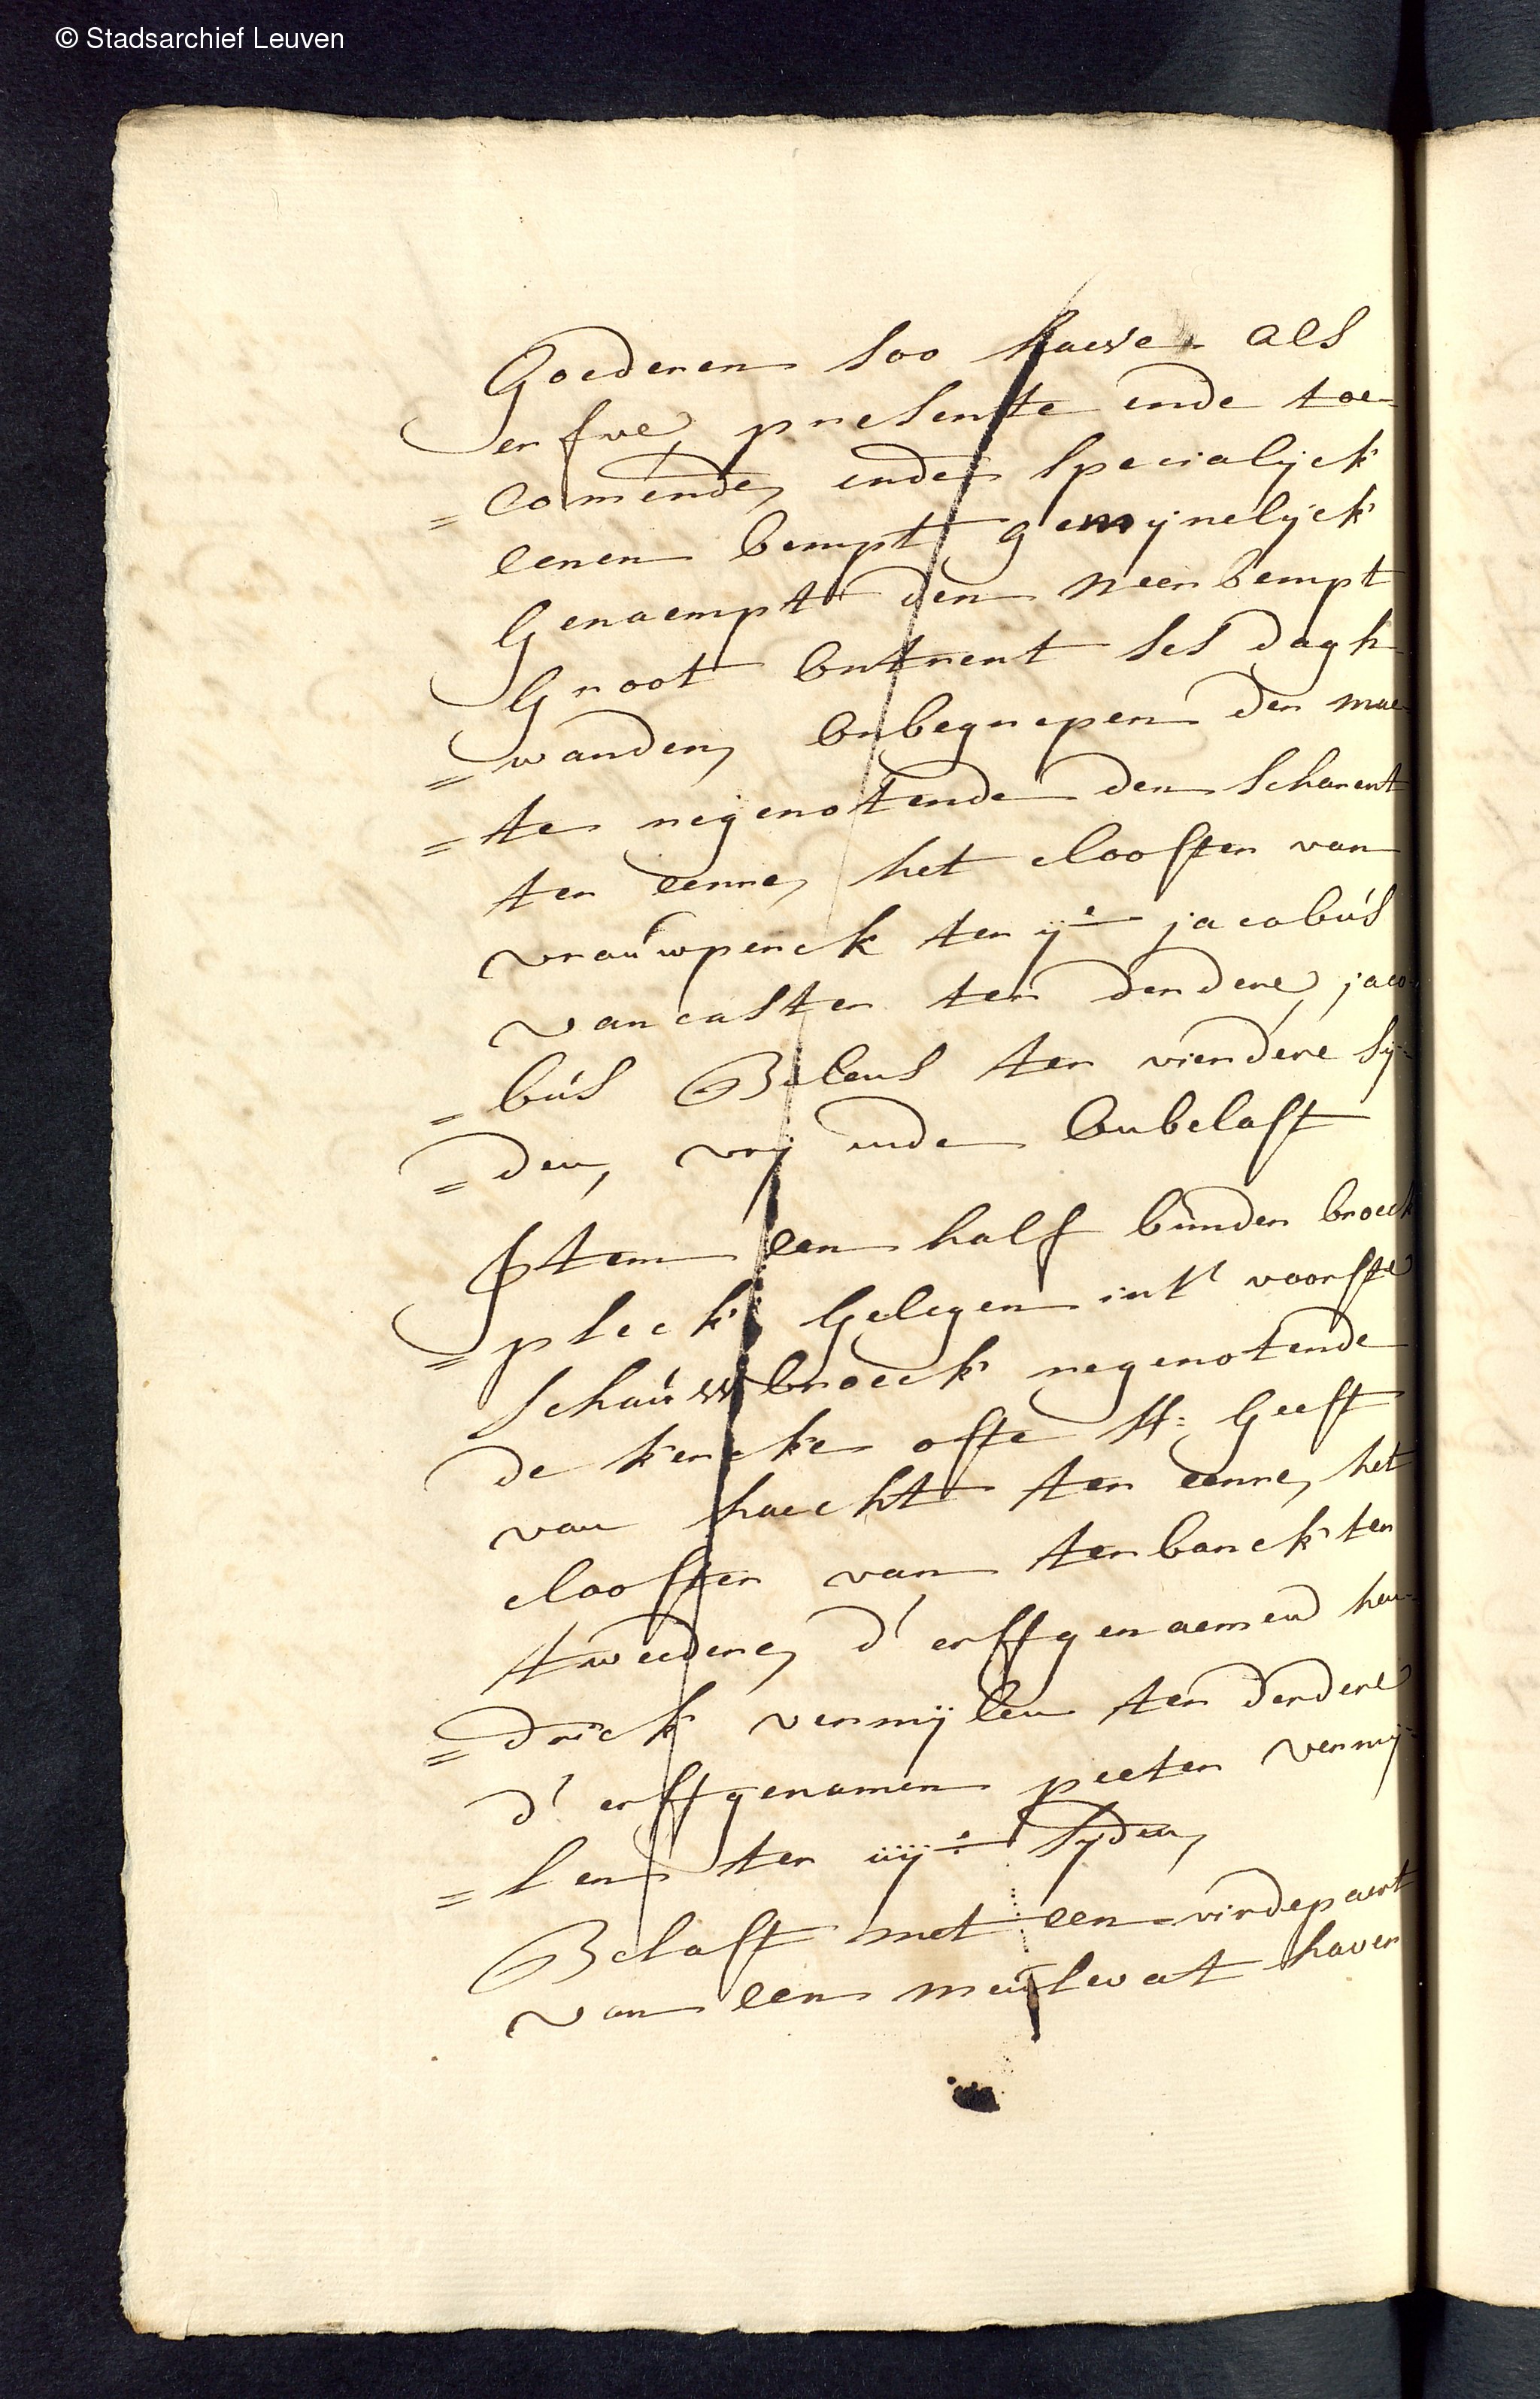 © Stadsarchief Leuven
Goederen soo haeve als
erfve, presente ende toe-
=comende, ende specialijck
eenen bempt gemijnelijck
Genaempt den neerbempt
Groot ontrent ses dagh
=wanden, onbegrepen der mae-
=te regenotende den scharent
ter eenre, het clooster van
vrauwperck ter ije jacobus
van caster ter derdere, jaco-
=bus Belens ter vierdere sij-
=den, vrij ende onbelast
Item een half bunder broeck
=pleck Gelegen int' voorste
schauwbroeck regenotende
de kercke ofte H: Geest
van haecht ter eenre, het
clooster van terbanck ter
tweedere, d' erffgenaemen hen-
=drick vermijlen ter derdere
d' erffgenamen peeter vermij-
=len ter iiije sijden,
Belast met een virdepaert
van een meulevat haver